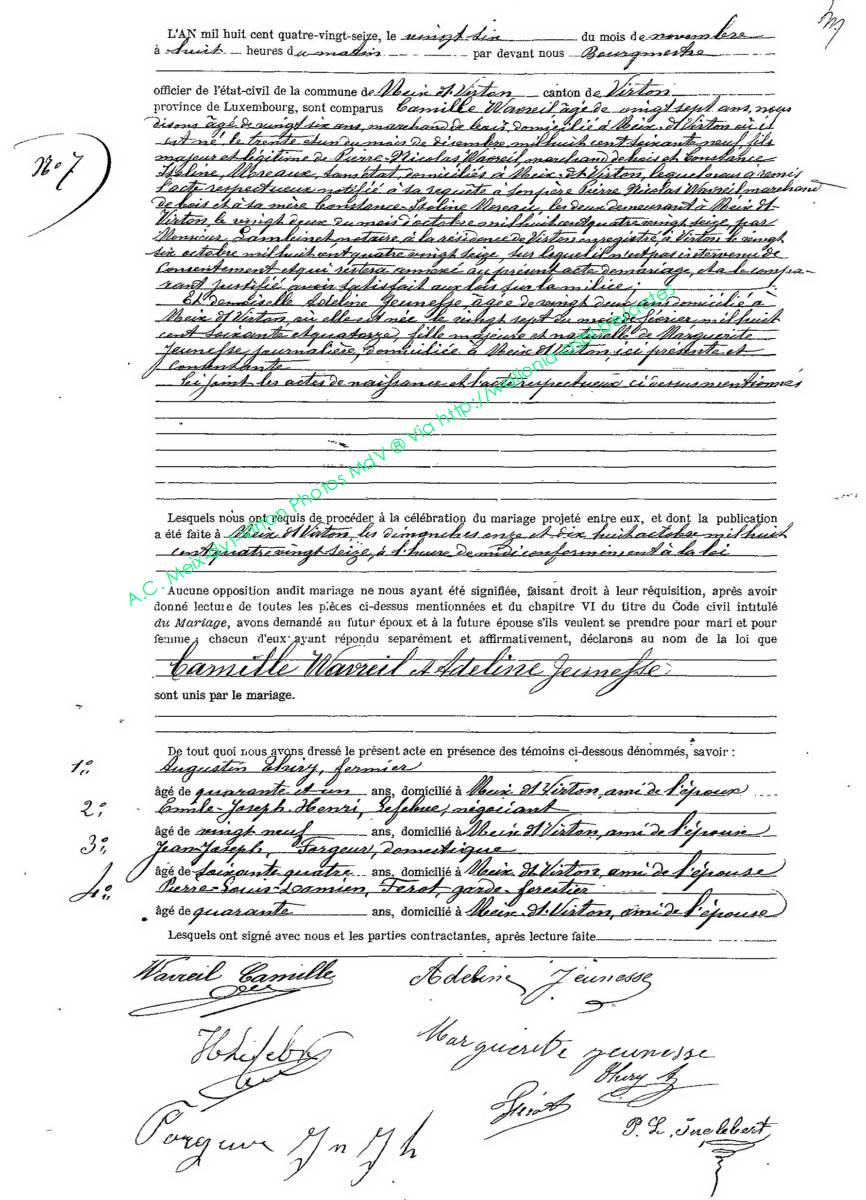 L'AN mil huit cent quatre-vingt-seize, le vingt six du mois de novembre
à huit heures du matin par devant nous Bourgmestre
officier de l'état-civil de la commune de Meix dt Virton canton de Virton
province de Luxembourg, sont comparus Camille Wavreil âgé de vingt sept ans, nous
disons âgé de vingt six ans, marchand de bois, domicilié à Meix dt Virton où il
est né le trente et un du mois de décembre mil huit cent soixante neuf, fils
majeur et légitime de Pierre-Nicolas Wavreil marchand de bois et Constance
Iseline, Moreaux, sans état domiciliés à Meix-dt-Virton, lequel nous a remis
l'acte respectueux notifié à sa requête à son père Pierre Nicolas Wavreil marchand
de bois et à sa mère Constance-Iseline Moreau, les deux demeurant à Meix dt
Virton, le vingt deux du mois d'octobre mil huit cent quatre vingt seize, par
Monsieur Lambinet notaire, à la résidence de Virton enregistré à Virton le vingt
six octobre mil huit cent quatre vingt seize, sur lequel il n'est pas intervenu de
consentement et qui restera annexé au présent acte de mariage, et a le compa-
rant justifié avoir satisfait aux lois sur la milice;
Nº 7
Et demoiselle Adeline Jeunesse, âgée de vingt deux ans domicilié à
Meix dt Virton où elle est née le vingt sept du mois de février mil huit
cent soixante et quatorze, fille majeure et naturelle de Marguerite
Jeunesse, journalière, domiciliée à Meix dt Virton, ici présente et
consentante
Ci joint les actes de naissance et l'acte respectueux ci dessus mentionnés
A.C. Meix-dv-Virton Photos MdV ® Via http://wallonia-asbl.be/actes
Lesquels nous ont requis de procéder à la célébration du mariage projeté entre eux, et dont la publication
a été faite à Meix dt Virton, les dimanches onze et dix huit octobre mil huit
cent quatre vingt seize, à l'heure de midi conformément à la loi
Aucune opposition audit mariage ne nous ayant été signifiée, faisant droit à leur réquisition, après avoir
donné lecture de toutes les pièces ci-dessus mentionnées et du chapitre VI du titre du Code civil intitulé
du Mariage, avons demandé au futur époux et à la future épouse s'ils veulent se prendre pour mari et pour
femme; chacun d'eux ayant répondu separément et affirmativement, déclarons au nom de la loi que
Camille Wavreil et Adeline Jeunesse
sont unis par le mariage.
De tout quoi nous avons dressé le présent acte en présence des témoins ci-dessous dénommés, savoir :
1º Augustin Thiry, fermier
âgé de quarante et un ans, domicilié à Meix dt Virton, ami de l'époux
2º Emile-Joseph-Henri, Lefebvre, négociant
âgé de vingt neuf ans, domicilié à Meix dt Virton, ami de l'épouse
3º Jean-Joseph, Forgeur, domestique
âgé de soixante quatre ans, domicilié à Meix dt Virton, ami de l'épouse
4º Pierre-Louis-Damien, Ferot, garde-forestier
âgé de quarante ans, domicilié à Meix-dt-Virton, ami de l'épouse
Lesquels ont signé avec nous et les parties contractantes, après lecture faite
Wavreil Camille Adeline Jeunesse
Marguerite jeunesse
Thiry A
Férot
Forgeur Jn Jh